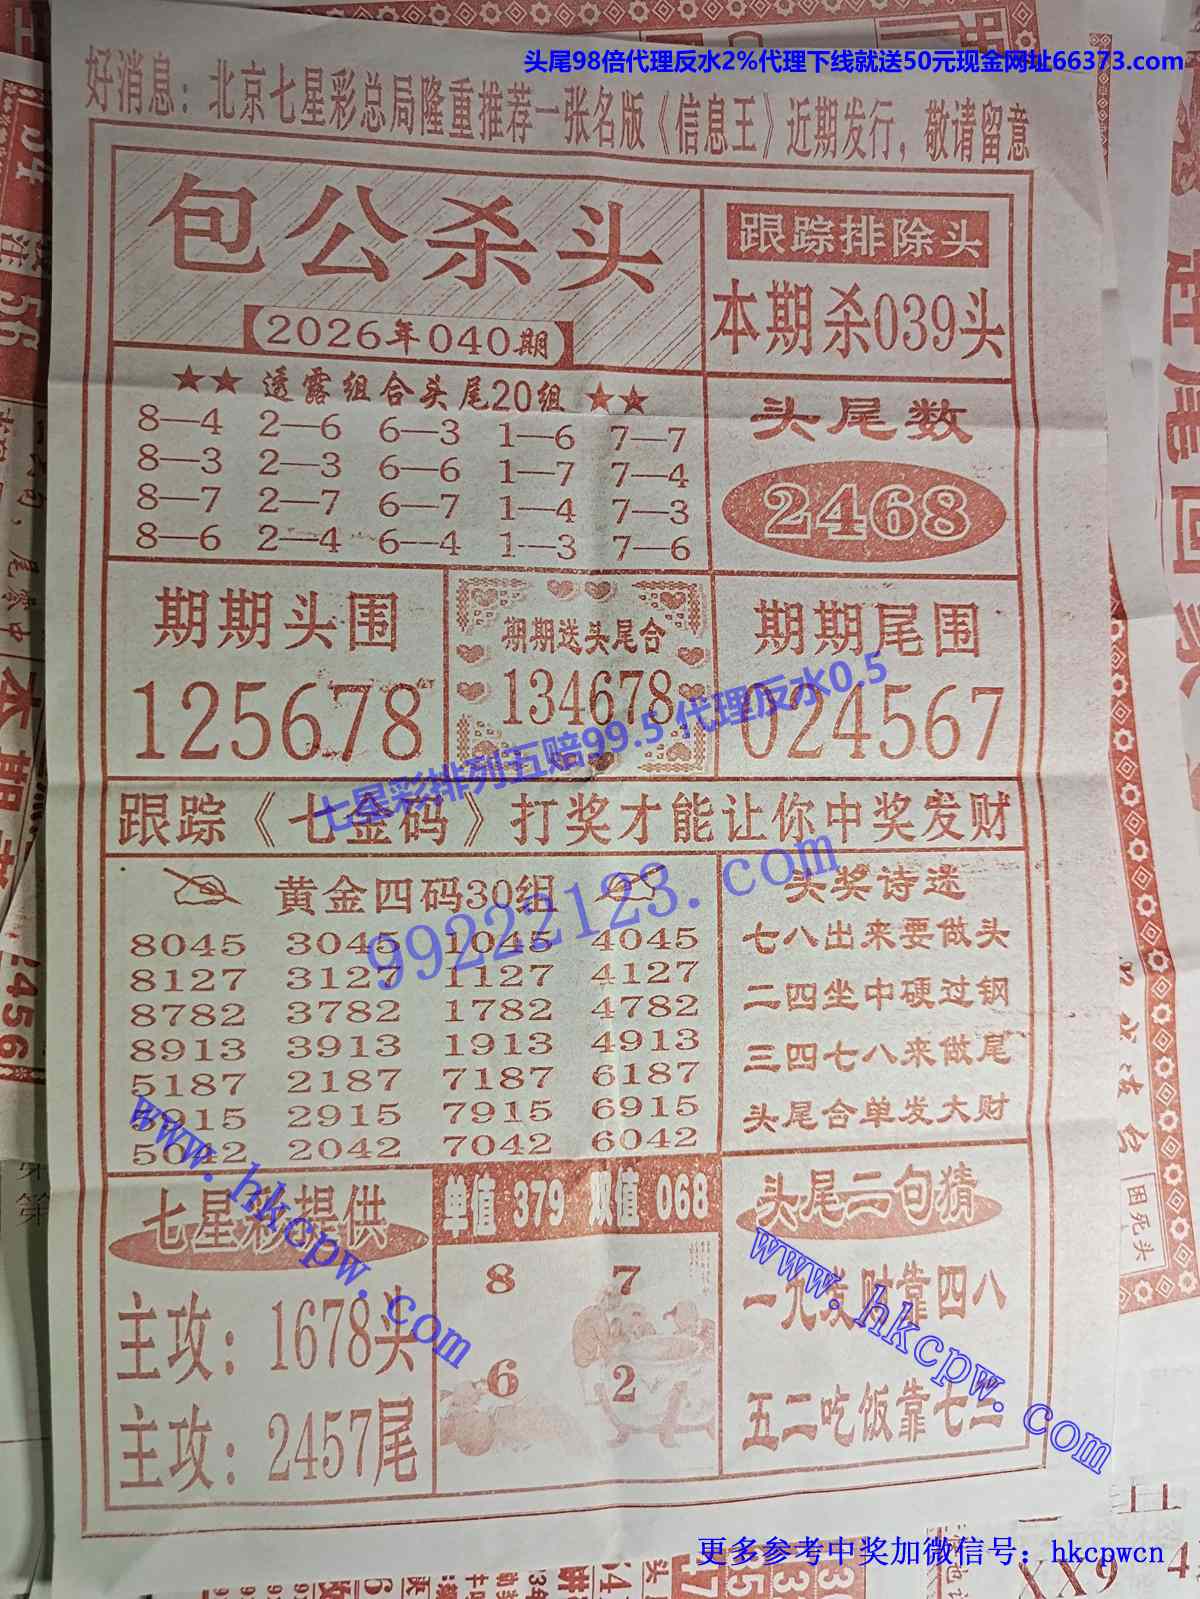 头尾98倍代理反水2%代理下线就送50元现金网址66373.com
好消息：北京七星彩总局隆重推荐一张名版《信息王》近期发行，敬请留意
包公杀头
【2026年040期】
跟踪排除头
本期杀039头
★★ 透露组合头尾20组 ★★
8—4 2—6 6—3 1—6 7—7
8—3 2—3 6—6 1—7 7—4
8—7 2—7 6—7 1—4 7—3
8—6 2—4 6—4 1—3 7—6
头尾数
2468
期期头围
125678
期期送头尾合
134678
期期尾围
024567
七星彩排列五赔99.5 代理反水0.5
跟踪《七金码》打奖才能让你中奖发财
99222123.com
黄金四码30组
8045 3045 1045 4045
8127 3127 1127 4127
8782 3782 1782 4782
8913 3913 1913 4913
5187 2187 7187 6187
5915 2915 7915 6915
5042 2042 7042 6042
头奖诗迷
七八出来要做头
二四坐中硬过钢
三四七八来做尾
头尾合单发大财
七星彩提供
主攻：1678头
主攻：2457尾
www.hkcpw.com
单值 379 双值 068
8 7
6 2
头尾二句猜
一九发财靠四八
五二吃饭靠七三
www.hkcpw.com
困死头
更多参考中奖加微信号：hkcpwcn